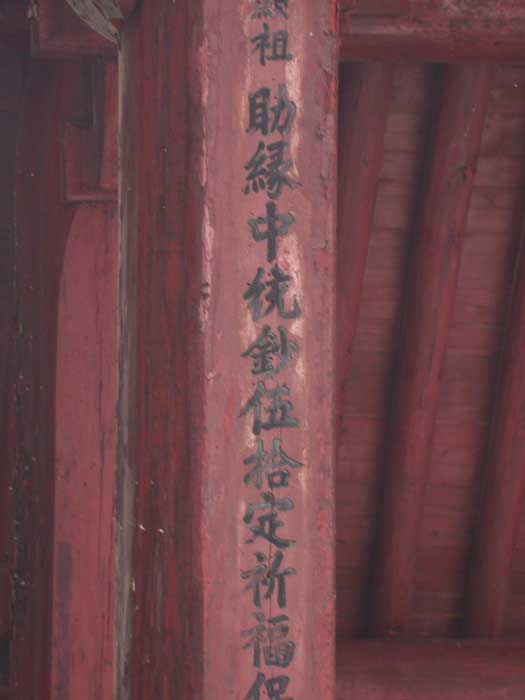 祖助縁中統鈔伍拾定祈福保